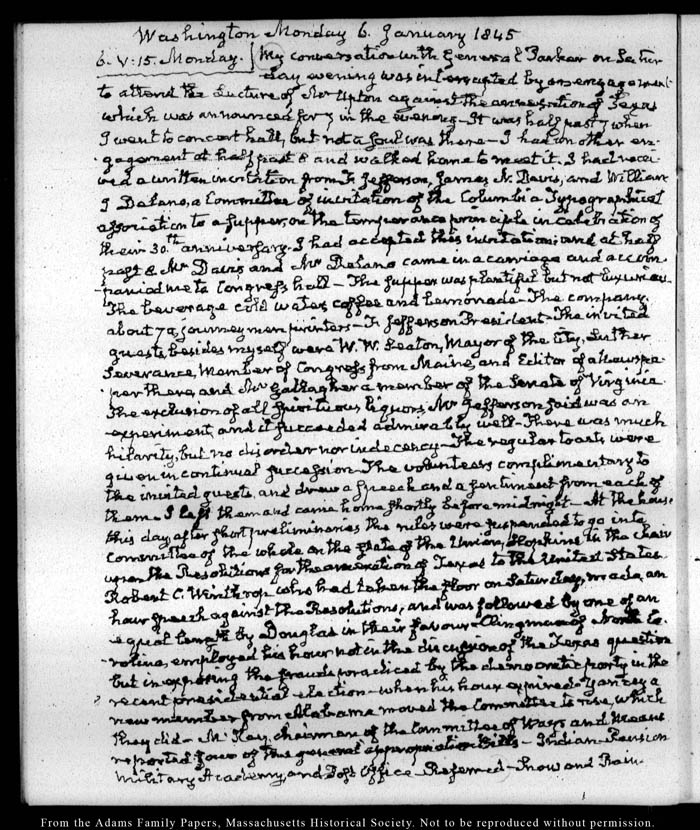 Washington Monday 6. January 1845
6. V:15. Monday. My conversation with General Parker on Satur
day evening was interrupted by an engagement
to attend the Lecture of Mr Upton against the annexation of Texas
which was announced for 7 in the evening. It was half past 7 when
I went to concert hall, but not a soul was there – I had another en-
gagement at half past 8 and walked home to meet it. I had recei-
ved a written invitation from F. Jefferson, James N. Davis, and William
J Delano, a Committee of invitation of the Columbia Typographical
association to a supper, on the temperance principle in celebration of
their 30th anniversary. I had accepted this invitation; and at half
past 8 Mr Davis and Mr Delano came in a carriage and accom
panied me to Congress hall – The supper was plentiful but not luxurious
The beverage cold water, coffee and Lemonade – The company
about 70, journeymen printers – F. Jefferson President. The invited
guests, besides myself were W. W. Seaton, Mayor of the City, Luther
Severance, Member of Congress from Maine, and Editor of a Newspa-
per there, and Mr Gallagher a member of the Senate of Virginia
The exclusion of all spirituous liquors, Mr Jefferson said was an
experiment, and it succeeded admirably well – There was much
hilarity, but no disorder nor indecency – The regular toasts were
given in continual succession – The volunteers complimentary to
the invited guests, and drew a speech and a sentiment from each of
them. I left them and came home shortly before midnight – At the house
this day after short preliminaries the rules were suspended to go into
Committee of the whole on the state of the Union, Hopkins in the chair
upon the Resolutions for the annexation of Texas to the United States
Robert C. Winthrop who had taken the floor on Saturday, made an
hour speech against the Resolutions, and was followed by one of an
equal length by Douglas in their favour – Clingman of North Ca-
rolina, employed his hour not in the discussion of the Texas question
but in exposing the frauds practiced by the democratic party in the
recent presidential election – when his hour expired Yancey a
new member from Alabama moved the Committee to rise, which
they did – McKay, chairman of the Committee of Ways and Means
reported four of the general appropriation bills – Indian – Pension
Military Academy, and Post Office – Referred – Snow and Rain.
From the Adams Family Papers, Massachusetts Historical Society. Not to be reproduced without permission.